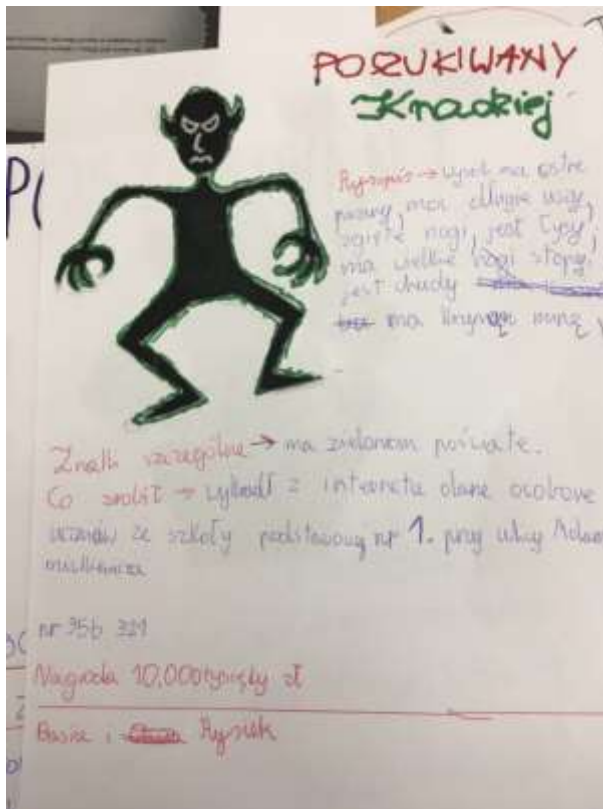 POSZUKIWANY
Knadziej
Rysopis → ma ostre
pazury, ma długie uszy,
zgięte nogi, jest łysy,
ma wielkie nogi stopy,
jest chudy
ma minę
Znaki szczególne → ma zielonom poświatę.
Co zrobił → wykradł z internetu dane osobowe
uczniów ze szkoły podstawowej nr 1. przy ulicy Adama
nr 356 321
Nagroda 10,000 tysięcy zł
Basia i Rysiek